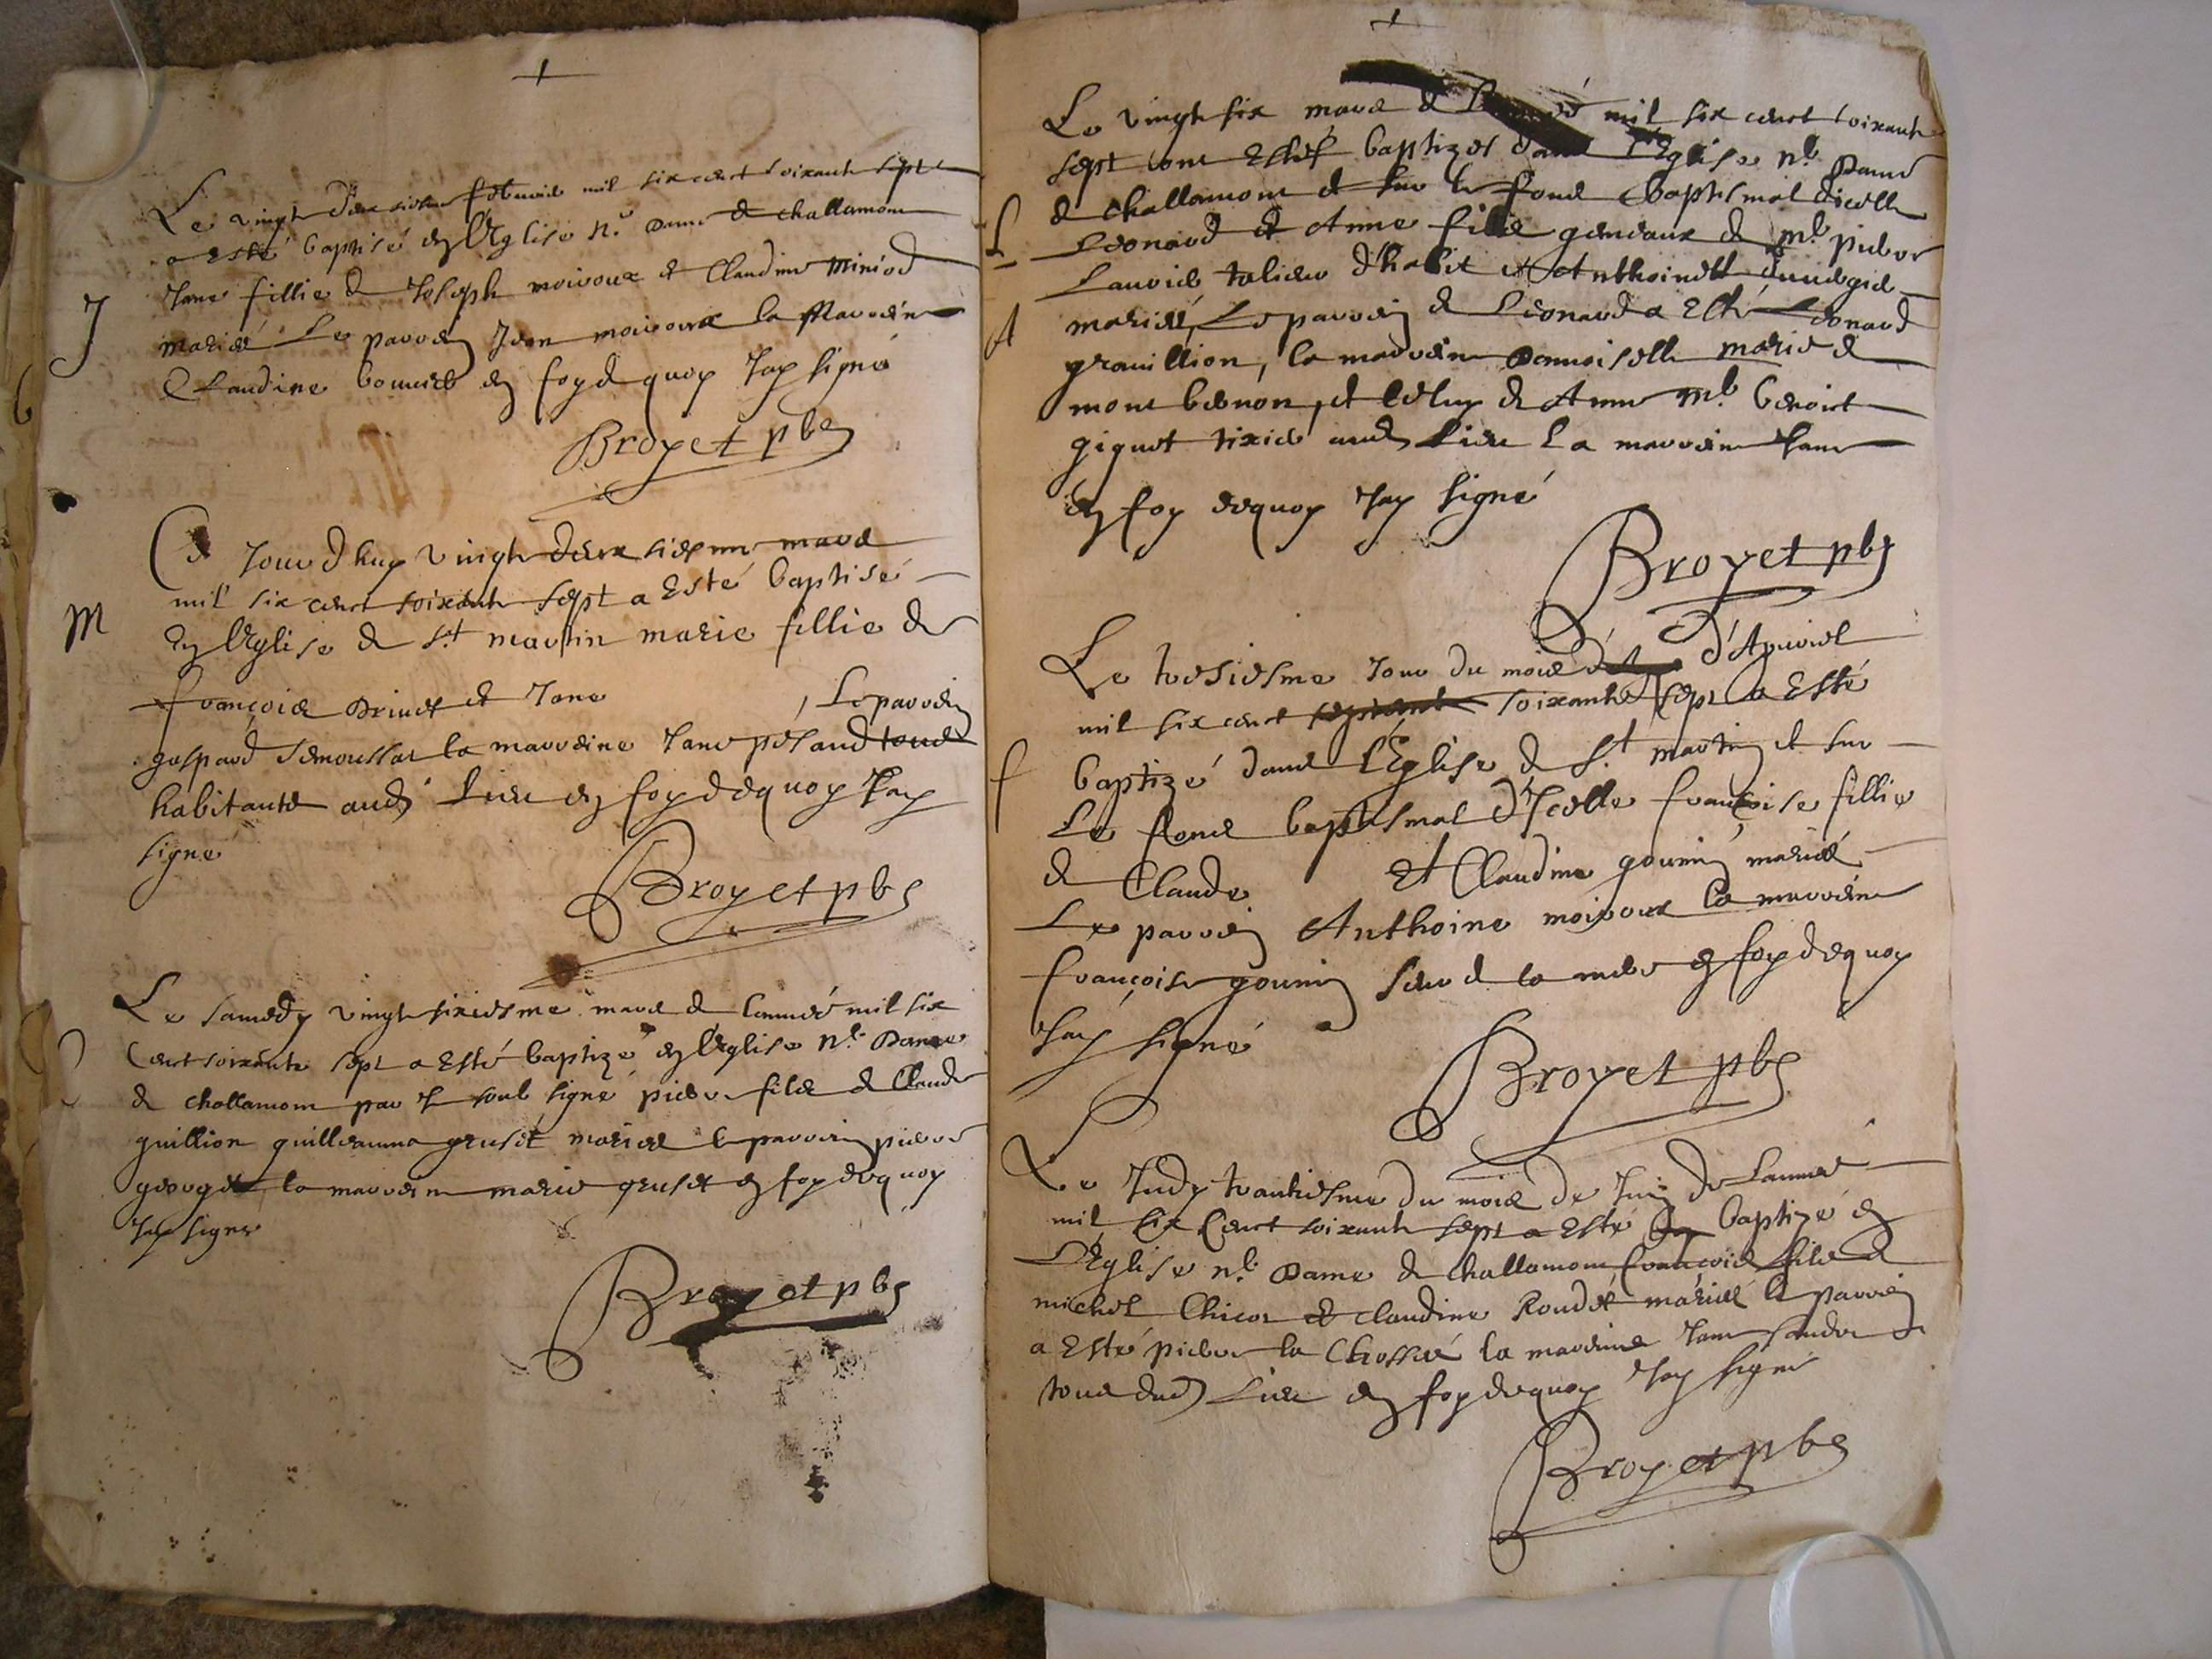 +
Le vingt deuxiesme febvrier mil six cent soixante sept
a Esté baptisé en l'Eglise N.e Dame de challamont
J
Jane fillie de Joseph moivoux et Claudine Miniod
mariés Le parrein Jean moivoux la Marreine
Claudine en foy de quoy Jay signé
Broyet pbre
Ce Jourd huy vingt deuxsiesme mars
M
mil six cent soixante sept a Esté baptisé
en l'Eglise de St martin marie fillie de
françois Drivet et Jane , Le parrein
gaspard la marreine Jane
habitants aud lieu en foy de quoy Jay
signé
Broyet pbre
Le samedy vingt sixiesme mars de l'année mil six
Cent soixante sept a Esté baptizé en l'Eglise N.e Dame
de challamont par Je soub signé pierre fils de Claude
guillion guillerma gruset mariés le parrein pierre
george la marreine marie gruset en foy de quoy
Jay signe
Broyet pbre
+
Le vingt six mars de l'année mil six cent soixante
sept ont Estés baptizes dans l'Eglise N.e Dame
de challamont et sur le fond baptismal d'icelle
L
Leonard et Anne fille gemeaux de M.e pierre
Lauvie talieur d'habit et Anthoinette
A
mariés, Le parrein de Leonard a Esté Leonard
gravillion, la marreine Damoiselle marie de
mont bernon, et celuy de Anne M.e benoict
giguet tixier aud Lieu La marreine Jane
en foy dequoy Jay signé
Broyet pbre
Le tresiesme Jour du mois d'Apvril
mil six cent soixante sept a Esté
f
baptizé dans l'Eglise de St martin et sur
Le fond baptismal d'Icelle françoise fillie
de Claude Et Claudine gounin mariés
Le parrein Anthoine moivoux la marreine
françoise gounin seur de la mere en foy dequoy
Jay signé
Broyet pbre
Le Judy trantiesme du mois de Juin de l'année
mil six Cent soixante sept a Esté baptizé en
L'Eglise N.e Dame de challamont françois fils de
michel Chicot et claudine Roudet mariés le parrein
a Esté pierre la Chossié la marreine Jane
tous dud Lieu en foy dequoy Jay signé
Broyet pbre